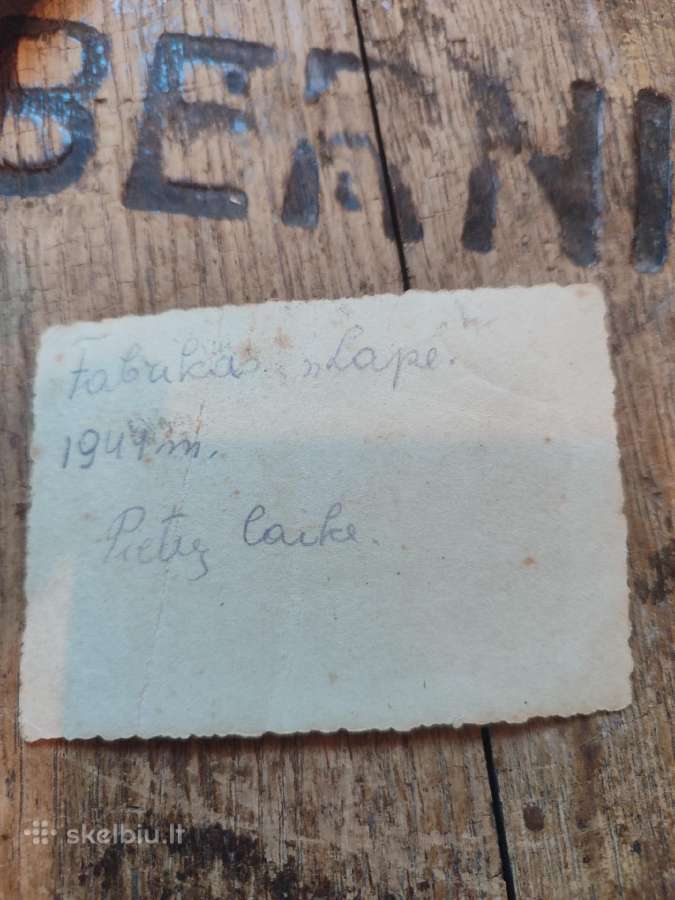 BERNI
Fabrikas „Lapė".
1941 m.
Pietų laike.
skelbiu.lt